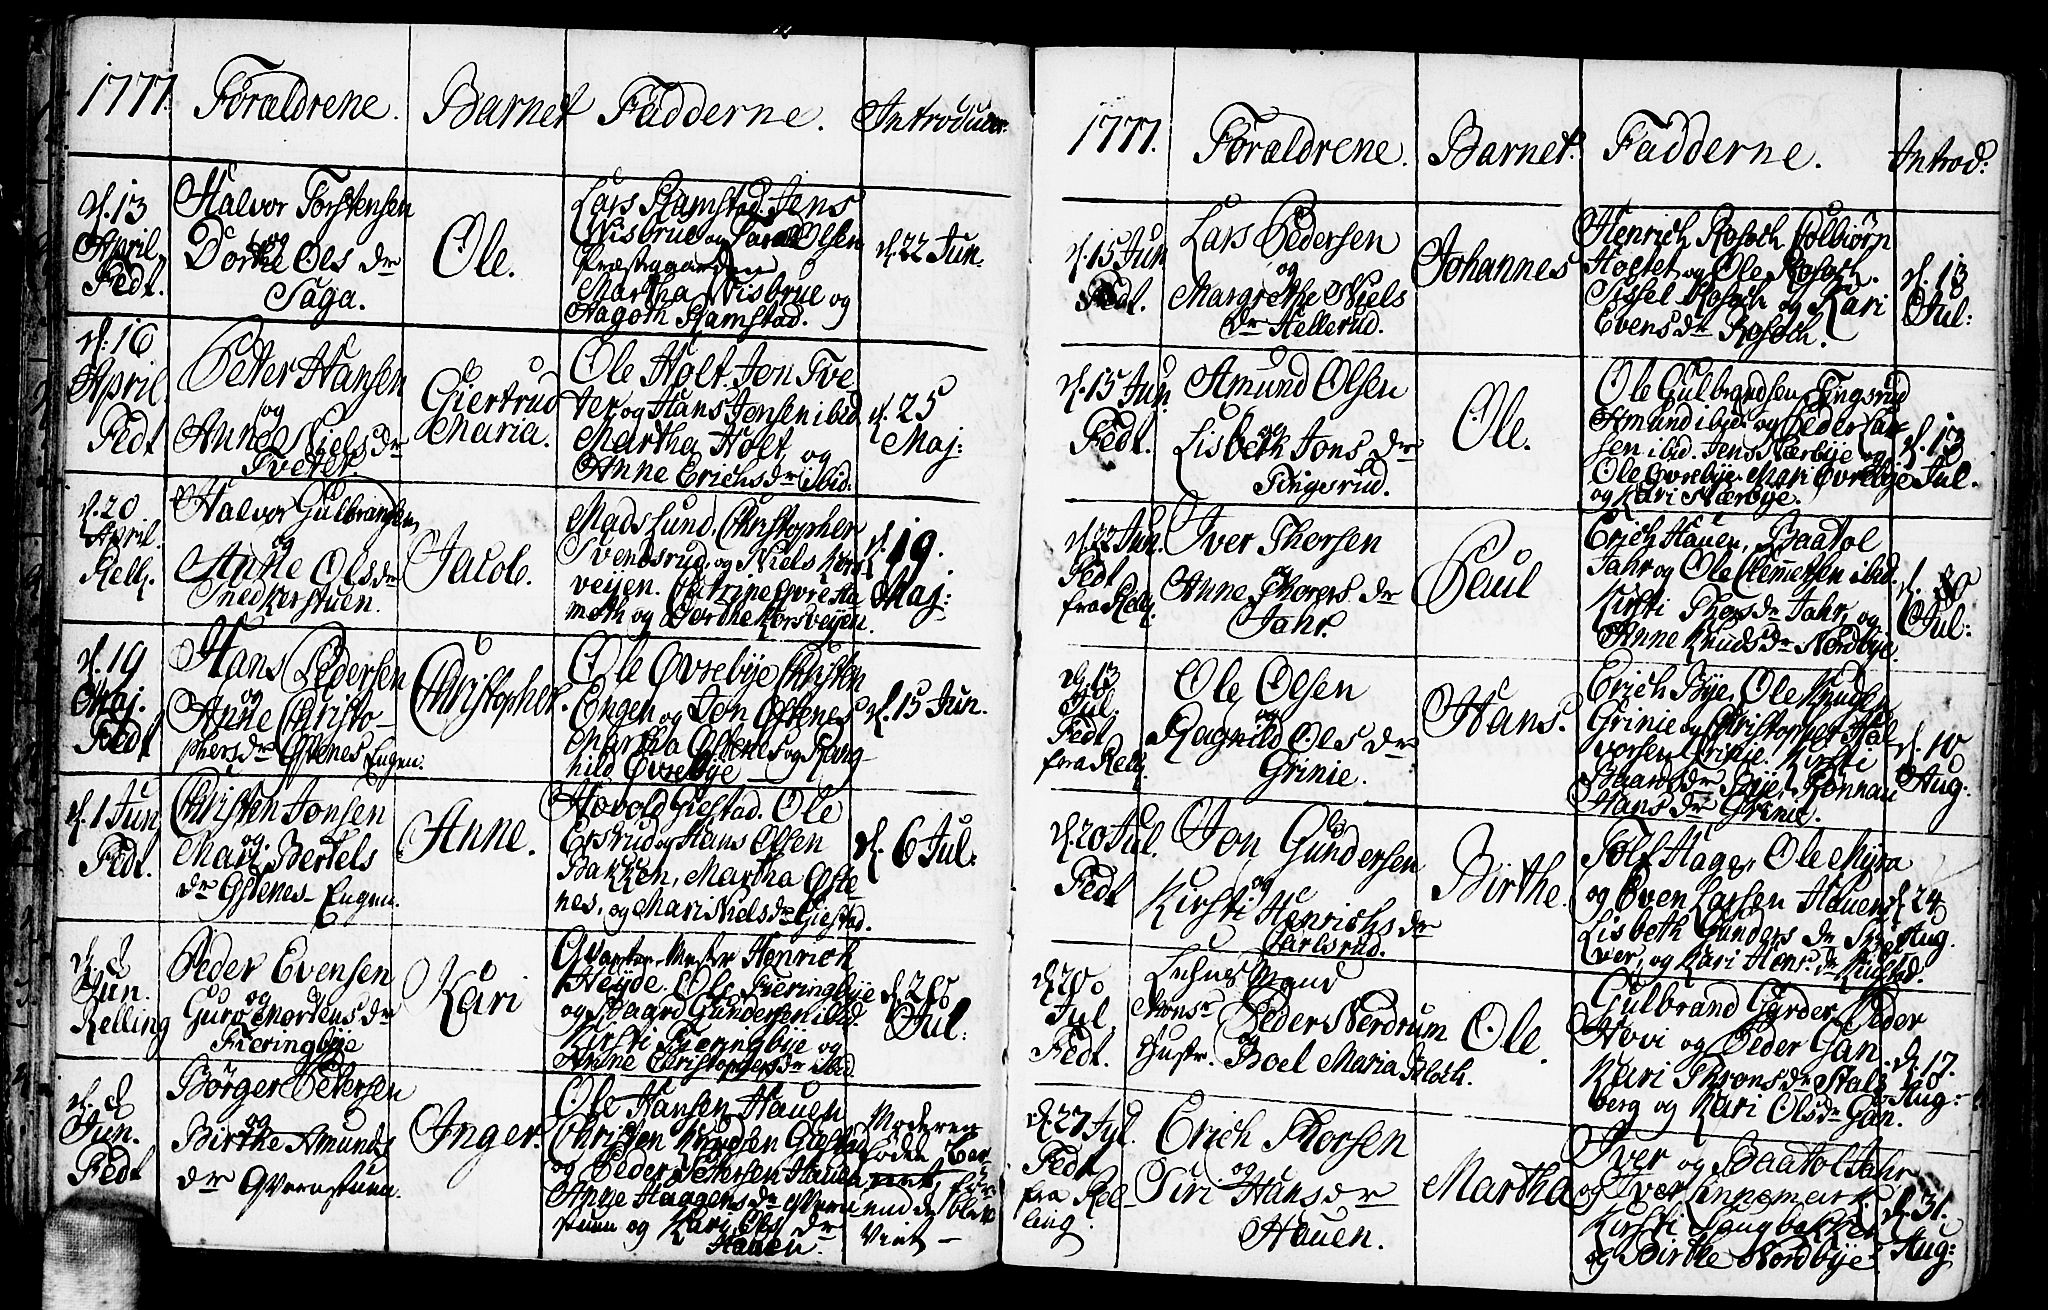 1777. Forældrene. Barnet Fadderne. Introducer:
d. 13
April
Fedt.
Halvor Torstensen
og
Dorthe Ols dr
Saga.
Ole.
Lars Ramstad. Jens
Nisbrue og Olsen
Præstegaarden
Martha Nisbrue og
Ramstad.
d. 22 Jun.
d. 16
April
Fedt
Peter Hansen
og
Anne Niels dr
Tveter.
Giertrud
Maria.
Ole Holt. Jon Tve-
ter og Hans Jensen ibid.
Martha Holt, og
Anne Erichs dr ibid:
d. 25
Maj:
d. 20
April.
Kell.
Halvor Gulbransen
og
Anne Ols dr
Snedkerstuen.
Jacob.
Mads Lund, Christopher
Svendsrud, og Niels Kors
veyen. Catrine Ovre Ha-
moth og Dorthe Korsveyen.
d. 19.
Maj:
d. 19
Maj.
Fedt
Hans Pedersen
og
Anne Christo-
phers dr Engen.
Christopher.
Ole Ovrebÿe Christen
Engen og Jon Ostenes
Martha Ostenes og Rang-
hild Ovrebÿe
d. 15 Jun.
d. 1 Jun
Fedt.
Christen Jonsen
og.
Mari Bertels
dr Engen.
Anne.
Hovold Giestad. Ole
Ersrud og Hans Olsen
Bakken, Martha Oste
nes, og Mari Niels dr Giestad.
d. 6 Jul:
d. d
Jun.
Kelling
Peder Evensen
og
Guro Mortens dr
Fieringbÿe
Kari
Qvarter-Mester Henrich
Heyde. Ole Fieringbÿe
og Baard Gundersen ibid.
Kirsti Fieringbÿe og
Anne Christophers dr ibid.
Jul:
d. d
Jun.
Fedt
Börger Petersen
og
Birthe Amunds
dr Qvernstuen.
Inger.
Ole Hansen Hauen
Christen Knudsen Giestad
og Peder Petersen Hauen
Anne Haagens dr Qvern
stuen og Kari Ols dr
Hauen.
Moderen
döde
för
end de blev
Viet –
1777. Forældrene. Barnet. Fadderne. Introd:
d. 15 Jun
Fedt.
Lars Pedersen
og
Margrethe Niels
Dr Hellerud.
Johannes
Henrich Rosoch Colbiörn
Holtet og Ole Rosoch.
Sissel Rosoch og Kari
Evens dr Rosoch.
d. 13
Jul:
d. 15 Jun.
Fedt.
Amund Olsen
og
Lisbeth Jons dr
Tingsrud.
Ole.
Ole Gulbrandsen Tingsrud
Amund ibid. og Peder Lar
sen ibid. Jens Nærbÿe og
Ole Ovrebÿe. Mari Ovrebÿe
og Kari Nærbÿe.
d. 13
Jul.
d. 22 Jun.
Fedt
fra Kell.
Iver Thorsen
og
Anne Thorers dr
Jahr.
Paul
Erich Hauen, Baatol
Jahr og Ole Clemmetsen ibid.
Kirsti Thors dr Jahr, og
Anne Knuds dr Nordbÿe.
d. 30
Jul:
d. 13
Jul.
Fedt
fra Kell.
Ole Olsen
og
Ragnild Ols dr
Grinie.
Hans.
Erich Bÿe, Ole Knudsen
Grinie og Christopher Hal
vorsen Grinie. Kirsti
Baards dr Bÿe, Rönnau
Hans dr Grinie.
d. 10
Aug:
d. 20 Jul.
Fedt
Jon Gundersen
og
Kirsti Henrichs dr
Carlsrud.
Birthe.
Tolf Hage, Ole Mÿra
og Even Larsen Hauen
Lisbeth Gunders dr
ver, og Kari Hans dr
d. 24
Aug.
d. 20
Jul
Fedt.
Mons.r Peder Nerdrum
og
Hustr. Boel Maria Bloch.
Ole.
Gulbrand Garder, Peder
Hovi og Peder Gan
Kari Throns dr Stals
berg og Kari Ols dr Gan.
d. 17.
Aug:
d. 27 Jul.
Fedt
fra Kel-
ling.
Erich Thorsen
og
Siri Hans dr
Hauen.
Martha
Iver og Baatol Jahr
og Iver Linnemark
Kirsti Haugbakken
og Birthe Nordbÿe
d. 31.
Aug: